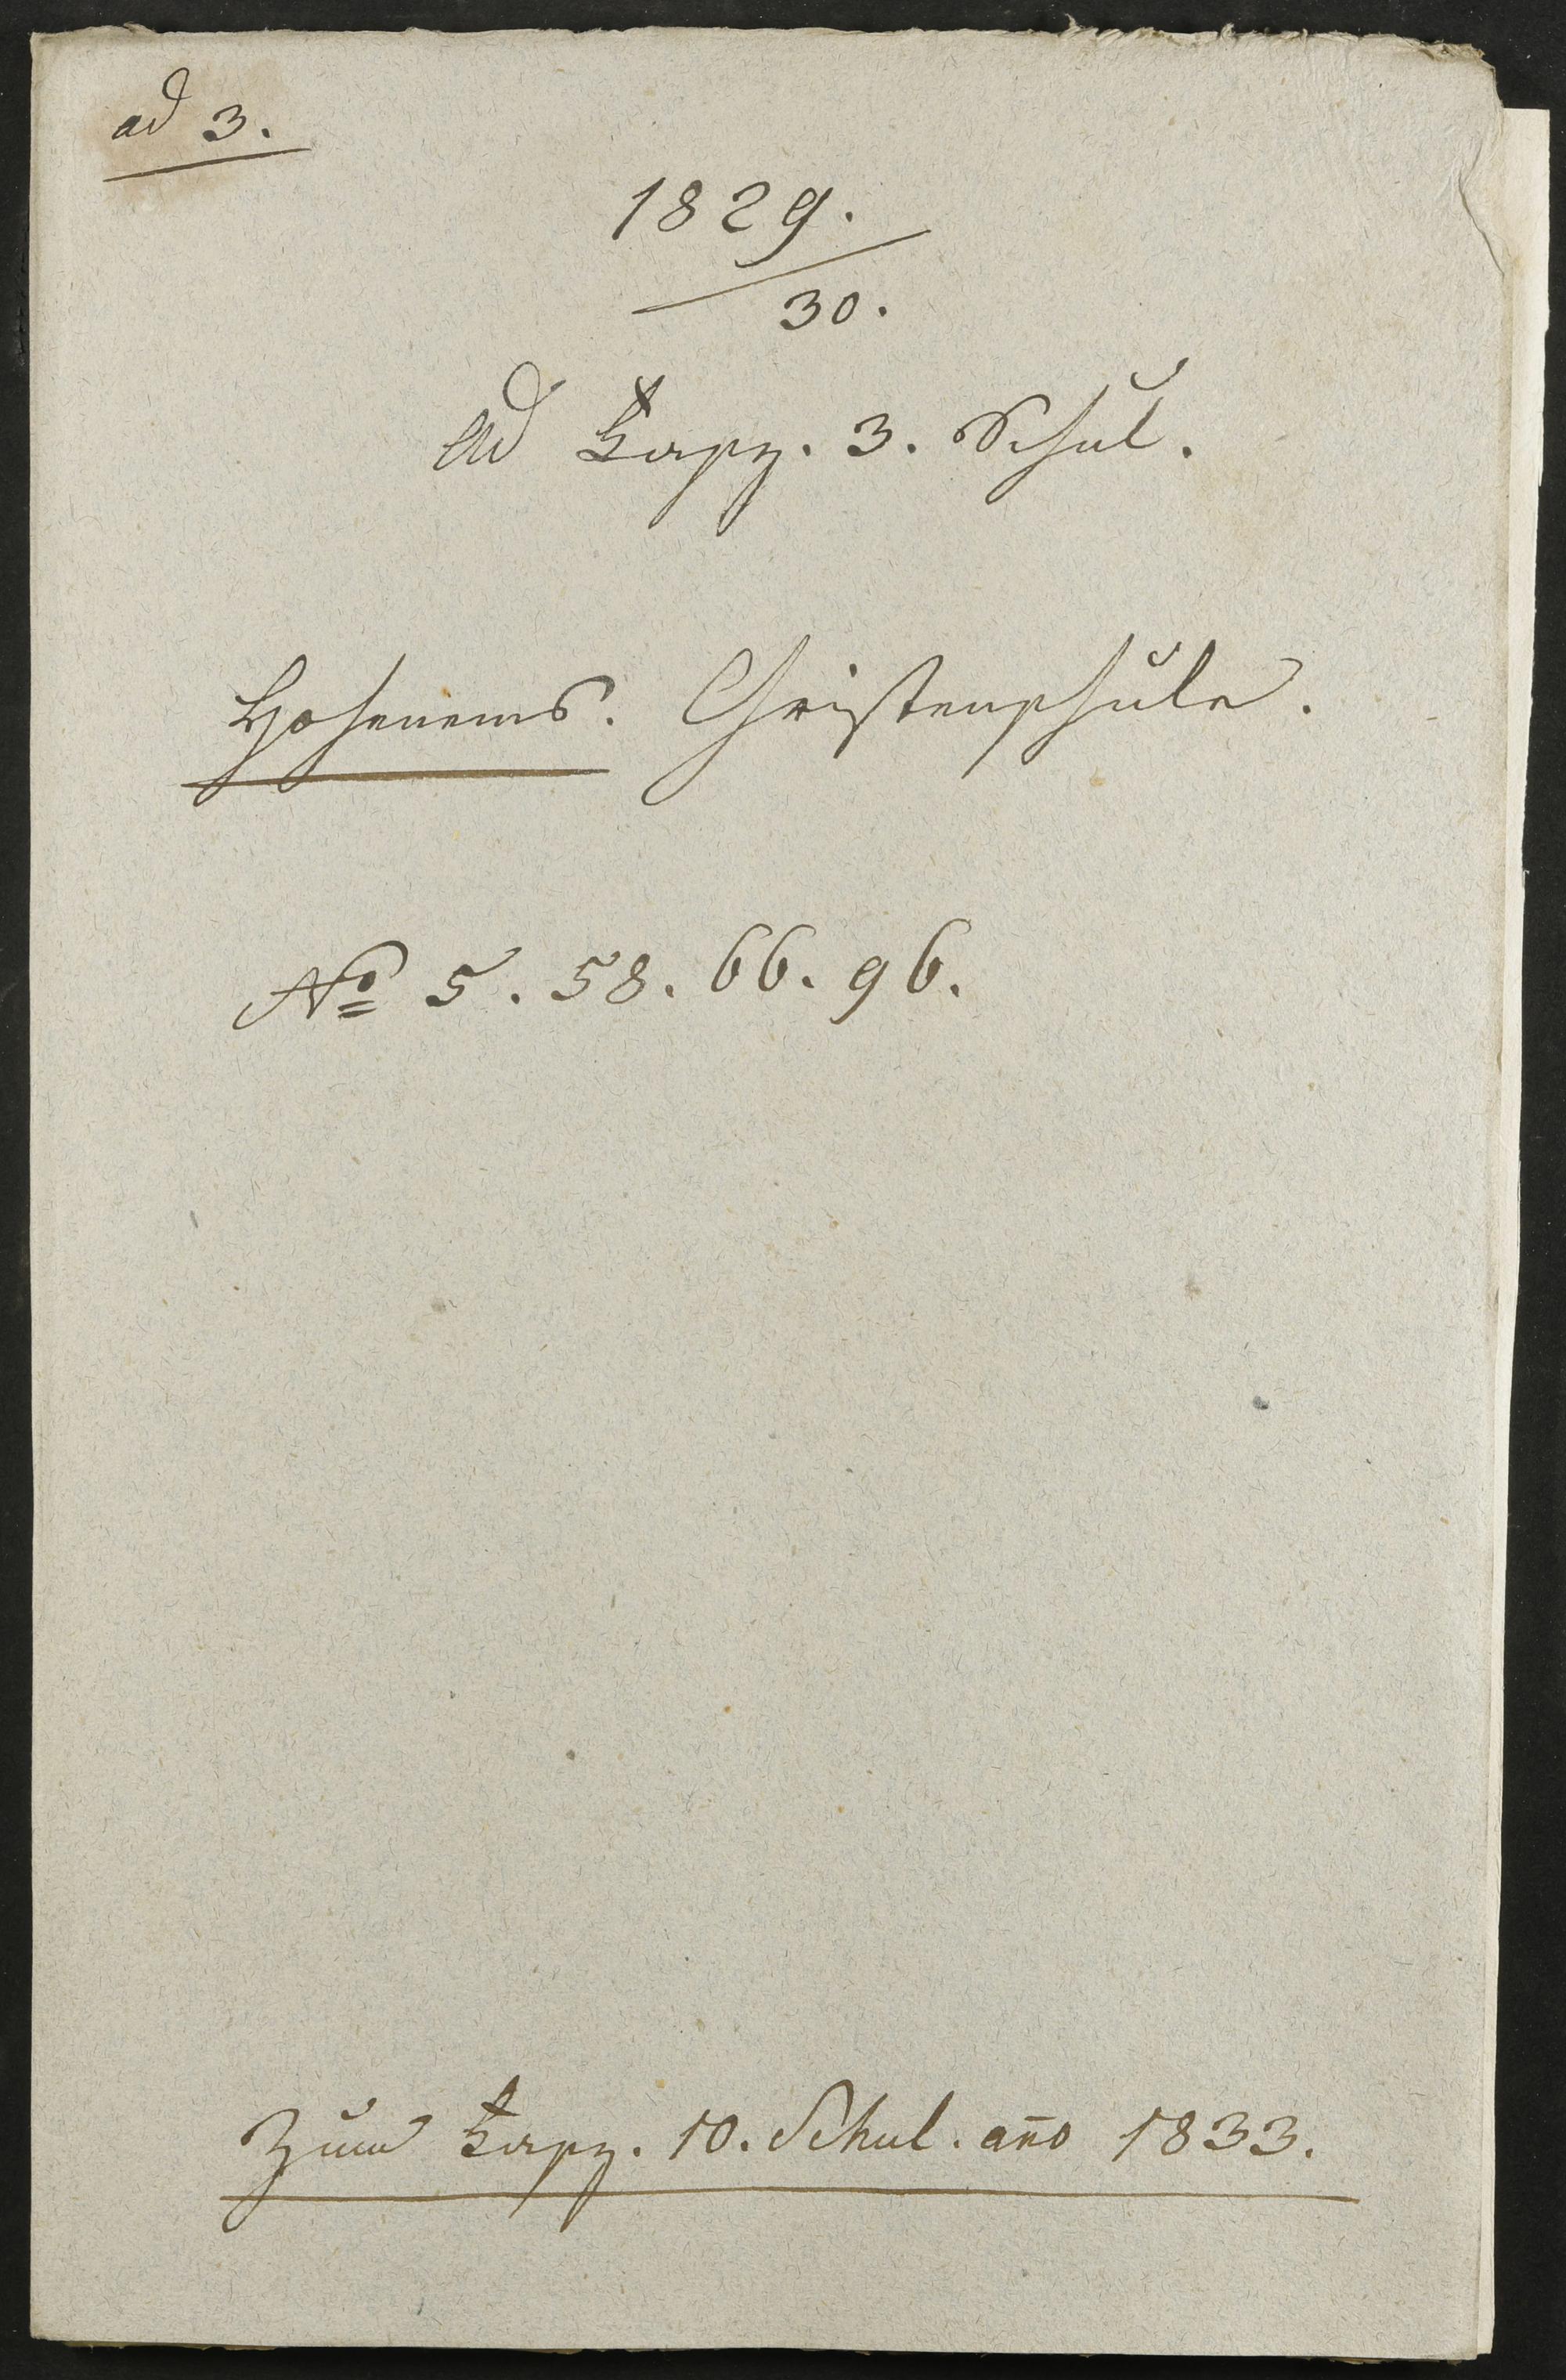 ad 3.
1829.
30.
Ad Fasz. 3. Schul.
Hohenems. Christenschule.
No 5. 58. 66. 96.
Zum Fasz. 10. Schul. ano 1833.